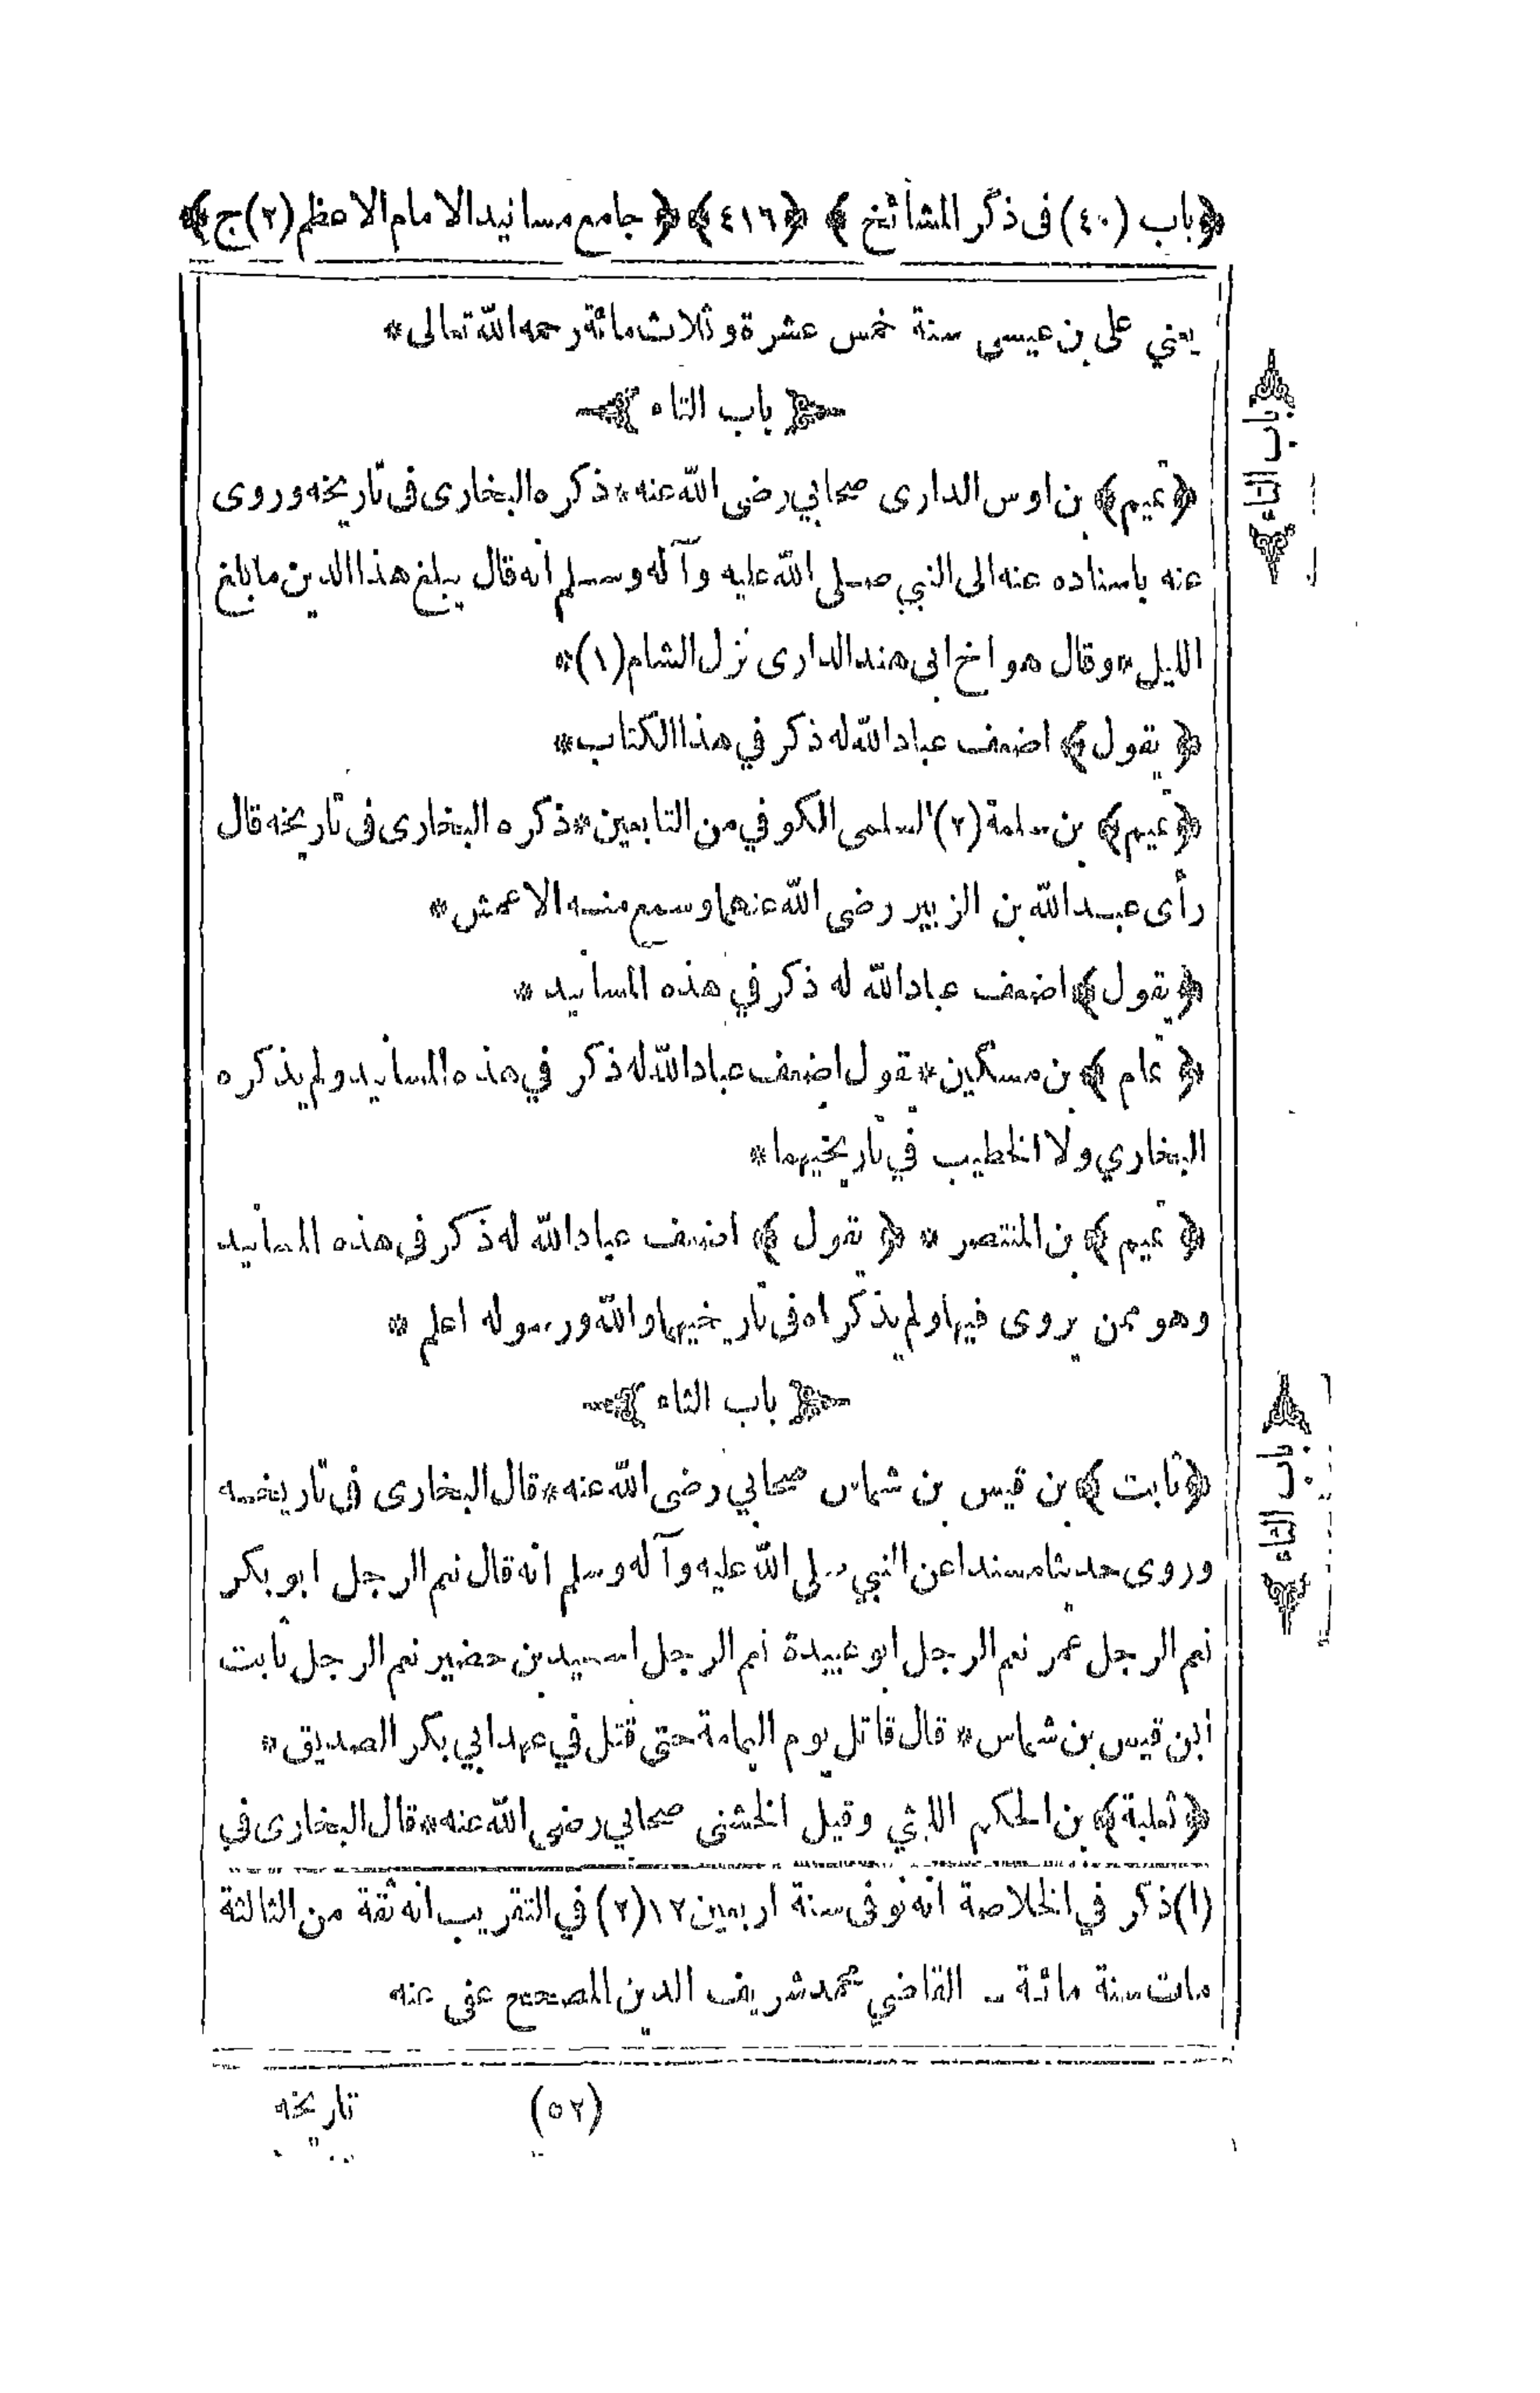 ﴿باب (٤٠) فى ذكر المشائخ﴾ ﴿٤١٦﴾ ﴿جامع مسانيد الامام الاعظم (٢) ج﴾
يعني على بن عيسى سنة خمس عشرة وثلاث مائة رحمه الله تعالى *
﴿باب التاء﴾
﴿تميم﴾ بن اوس الدارى صحابي رضى الله عنه * ذكره البخارى فى تاريخه وروى
عنه باسناده عنه الى النبي صلى الله عليه وآله وسلم انه قال يبلغ هذا الدين ما بلغ
الليل * وقال هو اخ ابى هند الدارى نزل الشام (١) *
﴿يقول﴾ اضعف عباد الله له ذكر في هذا الكتاب *
﴿تميم﴾ بن سلمة (٢) السلمى الكوفي من التابعين * ذكره البخارى فى تاريخه قال
رأى عبد الله بن الزبير رضى الله عنهما وسمع منه الاعمش *
﴿يقول﴾ اضعف عباد الله له ذكر في هذه المسانيد *
﴿تمام﴾ بن مسكين * يقول اضعف عباد الله له ذكر في هذه المسانيد ولم يذكره
البخاري ولا الخطيب في تاريخيهما *
﴿تميم﴾ بن المنتصر * ﴿يقول﴾ اضعف عباد الله له ذكر فى هذه المسانيد
وهو ممن يروى فيها ولم يذكراه فى تاريخيهما والله ورسوله اعلم *
﴿باب الثاء﴾
﴿ثابت﴾ بن قيس بن شماس صحابي رضى الله عنه * قال البخارى فى تاريخه
وروى حديثا مسندا عن النبي صلى الله عليه وآله وسلم انه قال نعم الرجل ابو بكر
نعم الرجل عمر نعم الرجل ابو عبيدة نعم الرجل اسيد بن حضير نعم الرجل ثابت
ابن قيس بن شماس * قال قاتل يوم اليمامة حتى قتل في عهد ابي بكر الصديق *
﴿ثعلبة﴾ بن الحكم الليثي وقيل الخشنى صحابي رضى الله عنه * قال البخارى في
(١) ذكر في الخلاصة انه توفى سنة اربعين ١٢ (٢) في التقريب انه ثقة من الثالثة
مات سنة مائة ـ القاضي محمد شريف الدين المصحح عفى عنه
(٥٢) تاريخه
باب التاء
باب الثاء